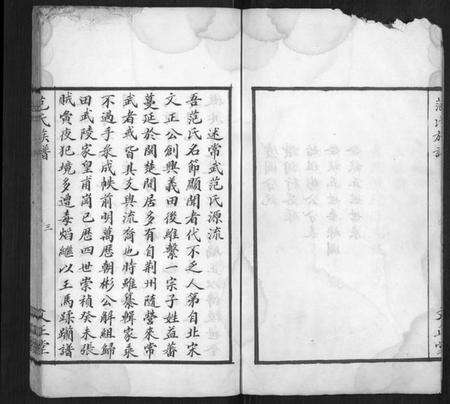 述常武范氏源流
吾范氏名節顯聞者代不乏人第自北宋
文正公創興義田後雖繫一宗子姓益蕃
蔓延於閩楚間居多有自荆州隨營來常
武者或皆其支與流裔也時雖纂輯家乘
不過手彔成帙前明萬歷朝彬公解組歸
田武陵家皇甫崗已歷四世崇禎癸未張
賊霄夜犯境多遭毒焰繼以王馬蹂躪譜
范氏族譜
三
文正堂
范氏族譜
文正堂